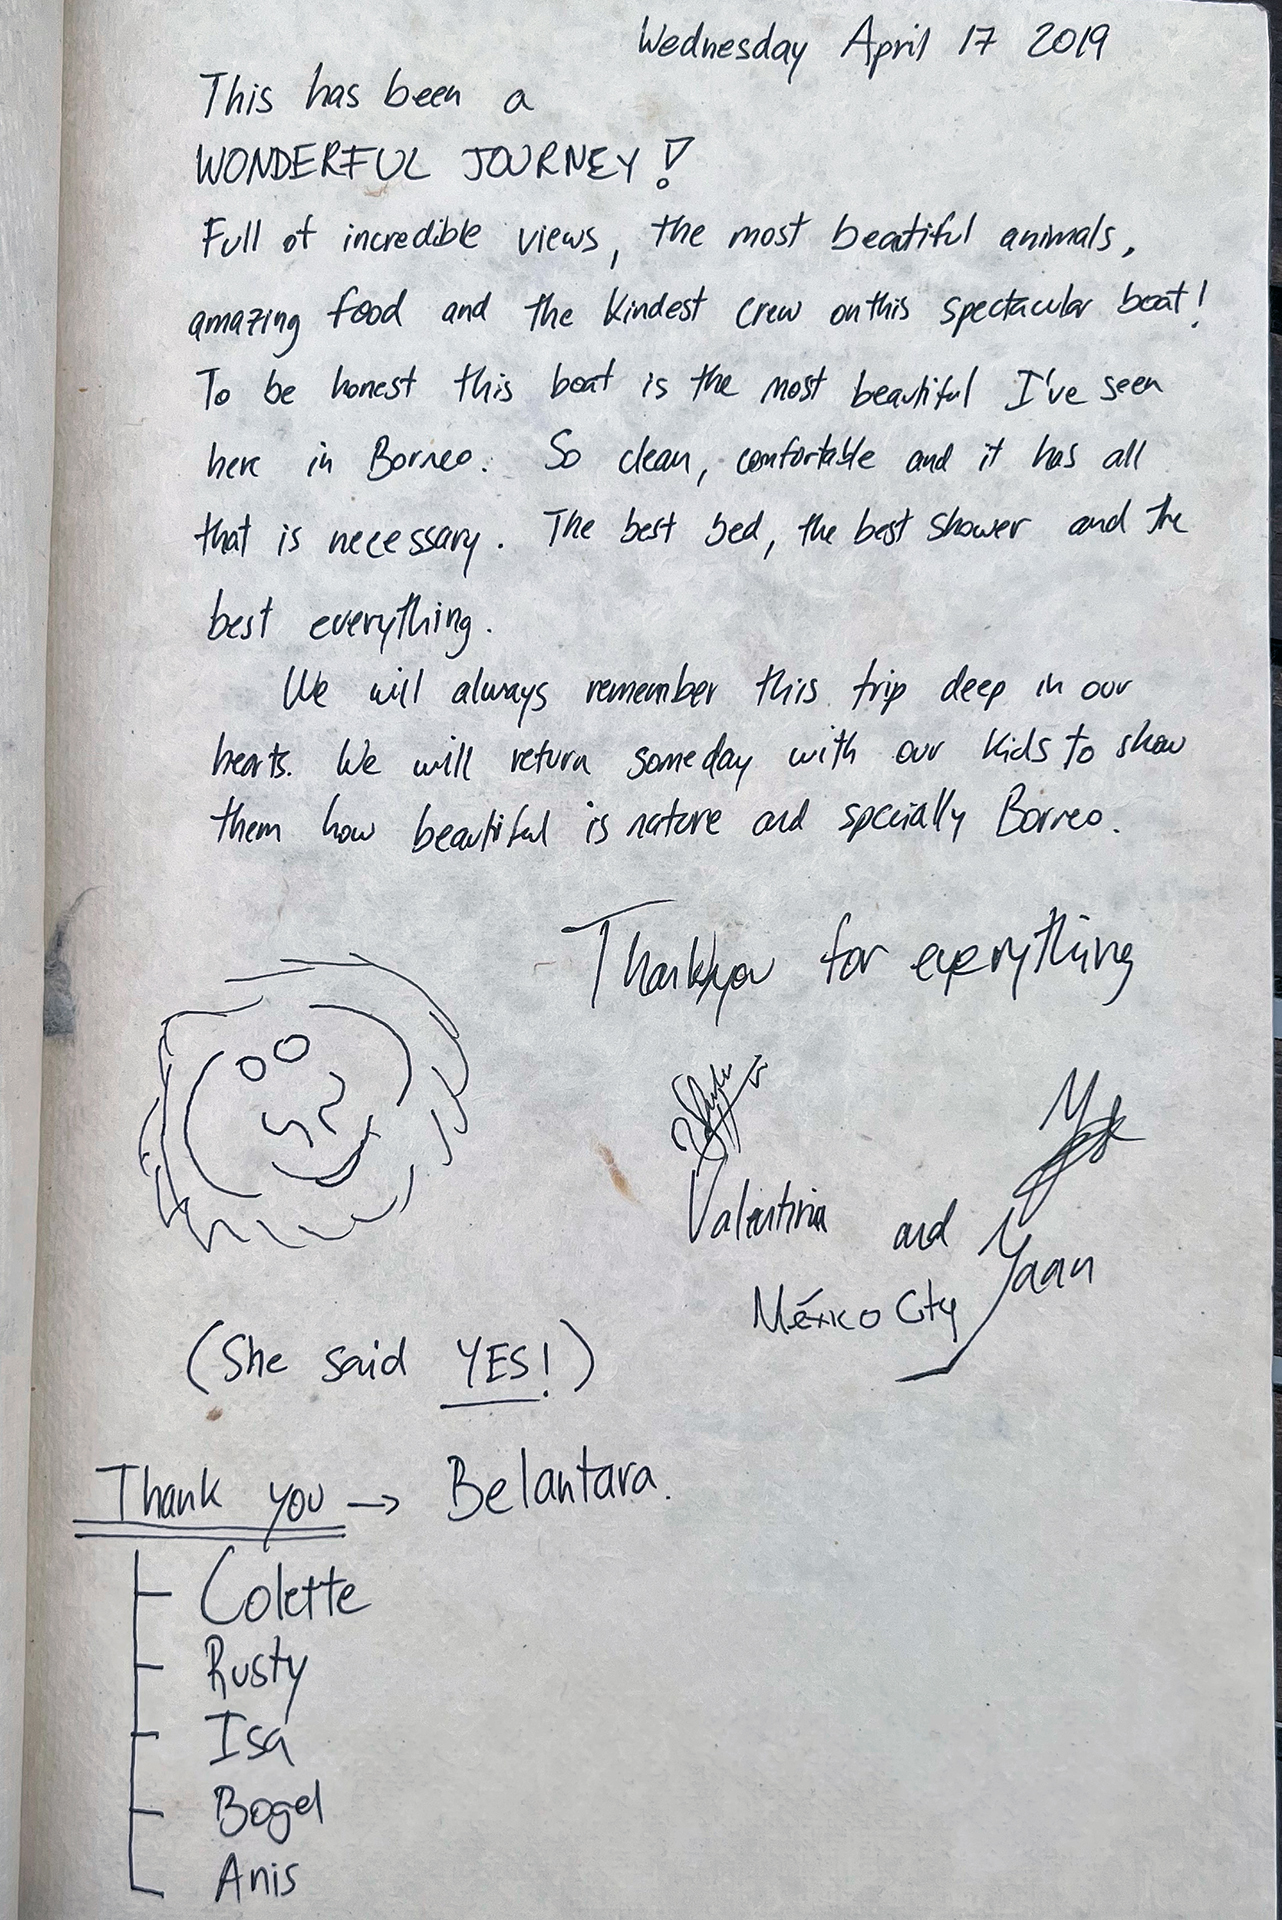 Wednesday April 17 2019
This has been a
WONDERFUL JOURNEY!
Full of incredible views, the most beautiful animals,
amazing food and the kindest crew on this spectacular boat!
To be honest this boat is the most beautiful I've seen
here in Borneo. So clean, comfortable and it has all
that is necessary. The best bed, the best shower and the
best everything.
We will always remember this trip deep in our
hearts. We will return someday with our kids to show
them how beautiful is nature and specially Borneo.
Thankyou for everything
Valentina and Yaan
México City
(She said YES!)
Thank you → Belantara.
Colette
Rusty
Isa
Bogel
Anis